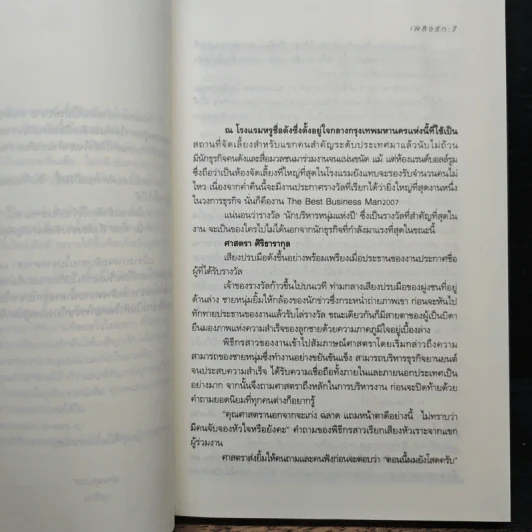 เพลิงรัก : 7
ณ โรงแรมหรูชื่อดังซึ่งตั้งอยู่ใจกลางกรุงเทพมหานครแห่งนี้ที่ใช้เป็น
สถานที่จัดเลี้ยงสำหรับแขกคนสำคัญระดับประเทศมาแล้วนับไม่ถ้วน
มีนักธุรกิจคนดังและสื่อมวลชนมาร่วมงานจนแน่นขนัด แม้ แต่ห้องแรนด์บอลล์รูม
ซึ่งถือว่าเป็นห้องจัดเลี้ยงที่ใหญ่ที่สุดในโรงแรมยังแทบจะรองรับจำนวนคนไม่
ไหว เนื่องจากค่ำคืนนี้จะมีงานประกาศรางวัลที่เรียกได้ว่ายิ่งใหญ่สุดงานหนึ่ง
ในวงการธุรกิจ นั่นก็คืองาน The Best Business Man2007
แน่นอนว่ารางวัล 'นักบริหารหนุ่มแห่งปี' ซึ่งเป็นรางวัลที่สำคัญที่สุดใน
งาน จะเป็นของใครไปไม่ได้นอกจากนักธุรกิจที่กำลังมาแรงที่สุดในขณะนี้
ศาสตรา ศิริธารากุล
เสียงปรบมือดังขึ้นอย่างพร้อมเพรียงเมื่อประธานของงานประกาศชื่อ
ผู้ที่ได้รับรางวัล
เจ้าของรางวัลก้าวขึ้นไปบนเวที ท่ามกลางเสียงปรบมือของฝูงชนที่อยู่
ด้านล่าง ชายหนุ่มยิ้มให้กล้องของนักข่าวซึ่งกระหน่ำถ่ายภาพเขา ก่อนจะหันไป
ทักทายประธานของงานแล้วรับโล่รางวัล ขณะเดียวกันก็มีสายตาของผู้เป็นบิดา
ยืนมองภาพแห่งความสำเร็จของลูกชายด้วยความภาคภูมิใจอยู่เบื้องล่าง
พิธีกรสาวของงานเข้าไปสัมภาษณ์ศาสตราโดยเริ่มกล่าวถึงความ
สามารถของชายหนุ่มซึ่งทำงานอย่างขยันขันแข็ง สามารถบริหารธุรกิจยานยนต์
จนประสบความสำเร็จ ได้รับความเชื่อถือทั้งภายในและภายนอกประเทศเป็น
อย่างมาก จากนั้นจึงถามศาสตราถึงหลักในการบริหารงาน ก่อนจะปิดท้ายด้วย
คำถามยอดนิยมที่ทุกคนต่างก็อยากรู้
"คุณศาสตรานอกจากจะเก่ง ฉลาด แถมหน้าตาดีอย่างนี้ ไม่ทราบว่า
มีคนจับจองหัวใจหรือยังคะ" คำถามของพิธีกรสาวเรียกเสียงหัวเราะจากแขก
ผู้ร่วมงาน
ศาสตราส่งยิ้มให้คนถามและคนฟังก่อนจะตอบว่า "ตอนนี้ผมยังโสดครับ"